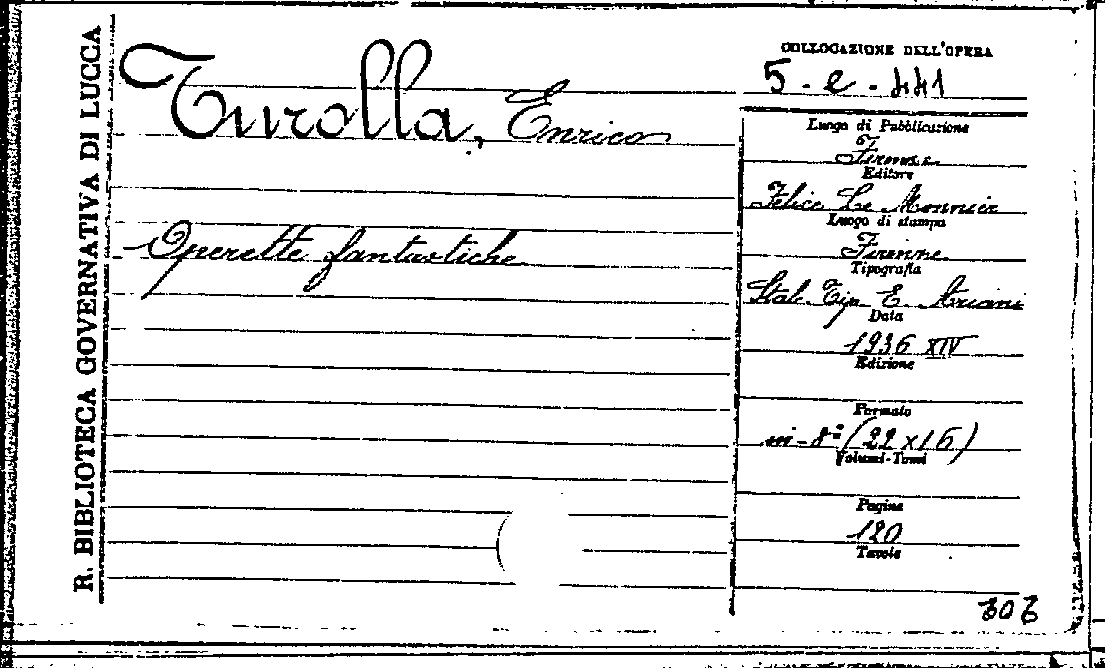 R. BIBLIOTECA GOVERNATIVA DI LUCCA
Turolla, Enrico
Operette fantastiche
COLLOCAZIONE DELL'OPERA
5 - e - 441
Luogo di Pubblicazione
Firenze
Editore
Felice Le Monnier
Luogo di stampa
Firenze
Tipografia
Stab. Tip. E. Ariani
Data
1936 XIV
Edizione
Formato
in-8° (22 x 16)
Volumi-Tomi
Pagine
120
Tavole